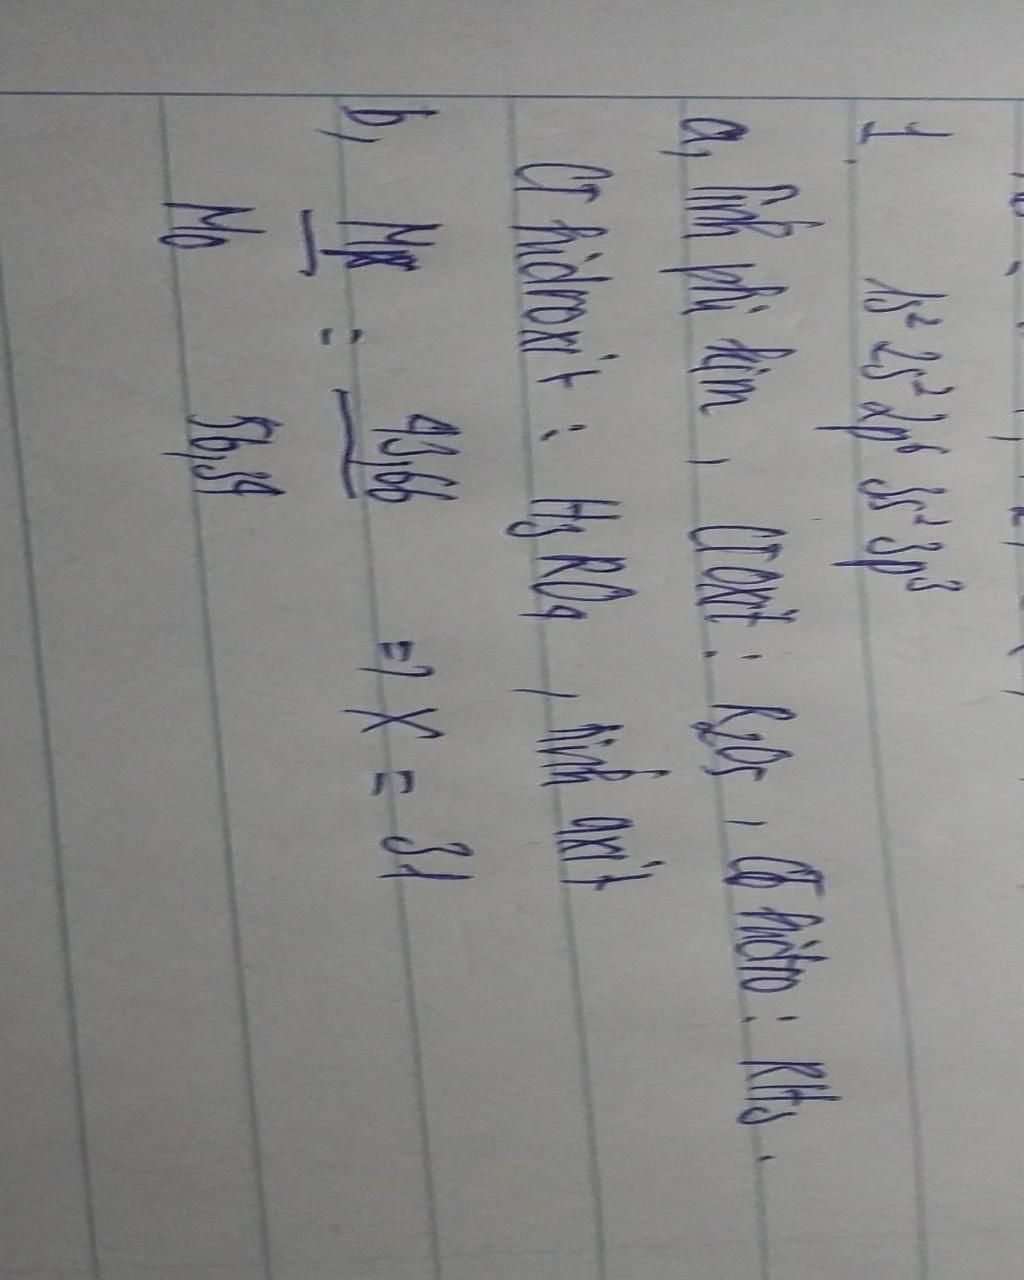 1. 1s² 2s² 2p⁶ 3s² 3p³
a, tính phi kim, CT oxit: R₂O₅, CT hidro: RH₃.
CT hidroxit: H₃RO₄, tính axit
b, Mx = 43,66 => X = 31
Mo 56,34